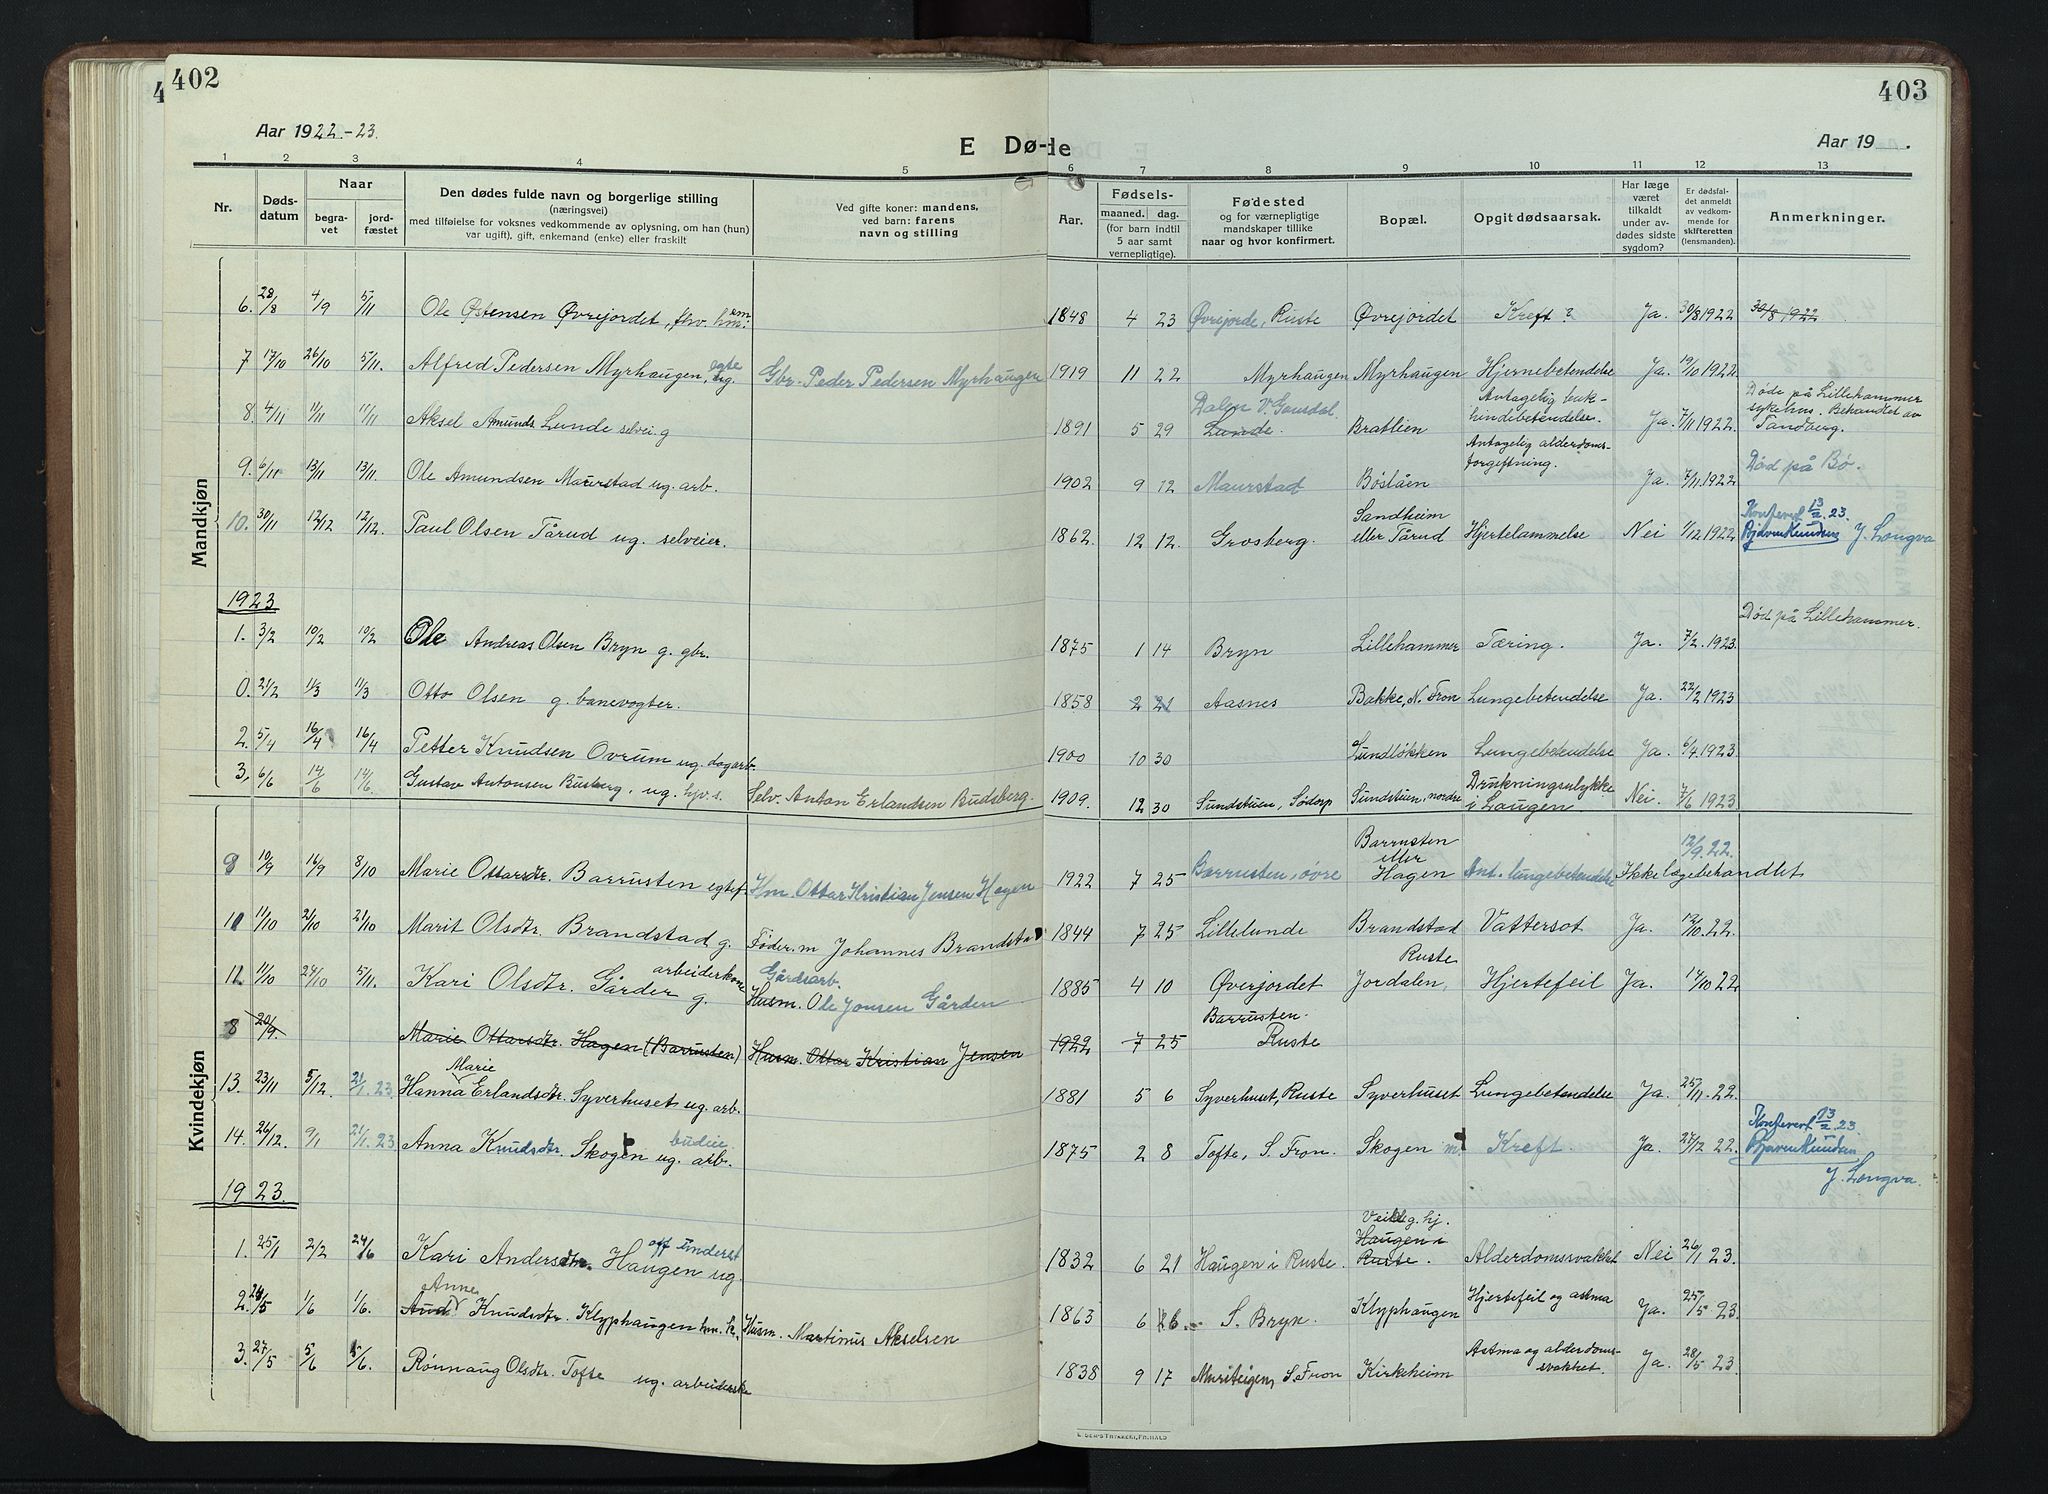 402
403
Aar 1922-23.
E Dø-de
Aar 19 .
1 2 3 4 5 6 7 8 9 10 11 12 13
Nr.
Døds-
datum
Naar
begra-
vet
jord-
fæstet
Den dødes fulde navn og borgerlige stilling
(næringsvei)
med tilføielse for voksnes vedkommende av oplysning, om han (hun)
var ugift), gift, enkemand (enke) eller fraskilt
Ved gifte koner: mandens,
ved barn: farens
navn og stilling
Aar.
Fødsels-
maaned. dag.
(for barn indtil
5 aar samt
vernepligtige).
Fødested
og for værnepligtige
mandskaper tillike
naar og hvor konfirmert.
Bopæl.
Opgit dødsaarsak.
Har læge
været
tilkaldt
under av-
dødes sidste
sygdom?
Er dødsfal-
det anmeldt
av vedkom-
mende for
skifteretten
(lensmanden).
Anmerkninger.
Mandkjøn
6. 28/8 4/9 5/11 Ole Østensen Øvrejordet, fhv. 1848 4 23 Øvrejorde, Ruste Øvrejordet Kreft? Ja. 30/8 1922 30/8 1922
7 17/10 26/10 5/11. Alfred Pedersen Myrhaugen, egte ug. Gbr. Peder Pedersen Myrhaugen 1919 11 22 Myrhaugen Myrhaugen Hjernebetendelse Ja. 19/10 1922.
8. 4/11 11/11 11/11 Aksel Amunds. Lunde selvei. g 1891 5 29 Dalen V. Gausdal Lunde. Bratlien Antagelig buk-
hindebetendelse. Ja. 7/11 1922. Døde på Lillehammer
sykehus. Behandlet av
Tandberg.
9. 6/11 13/11 13/11 Ole Amundsen Maurstad ug. arb. 1902 9 12 Maurstad Bøslåen Antagelig alderdoms-
forgiftning. Ja. 7/11. 1922 Død på Bø.
10. 30/11 12/12 12/12. Paul Olsen Tårud ug. selveier. 1862. 12 12. Grosberg. Sandheim
eller Tårud Hjertelammelse Nei 1/12 1922 Konferert 13/2. 23.
J. Longva
1923
1. 3/2 10/2 10/2 Ole Andreas Olsen Bryn g. gbr. 1875 1 14 Bryn Lillehammer Tæring. Ja. 7/2. 1923. Død på Lillehammer.
0. 21/2 1/3 1/3 Otto Olsen g. banevogter. 1858 2 21 Aasnes Bakke, N. Fron Lungebetendelse Ja. 22/2 1923
2. 5/4 16/4 16/4 Petter Knudsen Ovrum ug. dagarb. 1900 10 30 Lundløkken Lungebetendelse Ja. 6/4. 1923.
3. 6/6 14/6 14/6. Gustav Antonsen Busberg. ug. hjv.s. Selv. Anton Erlandsen Budsberg. 1909. 12 30 Sundstuen, Sødorp Sundstuen, nordre Drukningsulykke
i Laugen. Nei. 7/6 1923.
Kvindekjøn
9 10/9 16/9 8/10 Marie Ottarsdtr. Barrusten egtef. Hm. Ottar Kristian Jensen Hagen 1922 7 25 Barrusten, øvre Barrusten
eller
Hagen Ant. lungebetendelse Ikke lægebehandlet 12/9. 22.
11 11/10 21/10 21/10 Marit Olsdtr. Brandstad g. Føder.m Johannes Brandstad 1844 7 25 Lillelunde Brandstad Vattersot Ja. 12/10. 22.
12. 11/10 24/10 5/11. Kari Olsdtr. Gårder g. arbeiderkone Gårdsarb.
Husm. Ole Jonsen Gården 1885 4 10 Øverjordet Ruste
Jordalen, Hjertefeil Ja. 14/10 22
8 20/9. Marie Ottarsdtr. Hagen (Barrusten) Husm. Ottar Kristian Jensen 1922 7 25 Barrusten.
Ruste
13. 23/11 5/12. 21/1. 23 Hanna Marie Erlandsdtr. Syverhuset ug. arb. 1881 5 6 Syverhuset, Ruste Syverhuset Lungebetendelse Ja. 25/11. 22.
14. 26/12. 9/1 21/1. 23 Anna Knudsdtr. Skogen ug. arb. budeie 1875 2 8 Tofte, S. Fron. Skogen Kreft. Ja. 27/12 22. Konferert 13/2. 23.
J. Longva.
1923.
1. 25/1 2/2 24/6 Kari Andersdtr. Haugen ug. off underst 1832 6 21 Haugen i Ruste. Veikleg. hj.
Haugen i
Ruste. Alderdomssvakhet Nei 26/1 23.
2. 24/5 1/6 1/6. Aud Anne Knudsdtr. Klyphaugen hm. k. Husm. Martinus Akselsen 1863 6 S. Bryn. Klyphaugen Hjertefeil og astma Ja. 25/5 23.
3. 27/5 5/6 5/6. Rønnaug Olsdtr. Tofte ug. arbeiderske 1838 9 17 Muriteigen, S. Fron Kirkeheim Astma og alderdoms-
svakhet. Ja. 28/5 23.